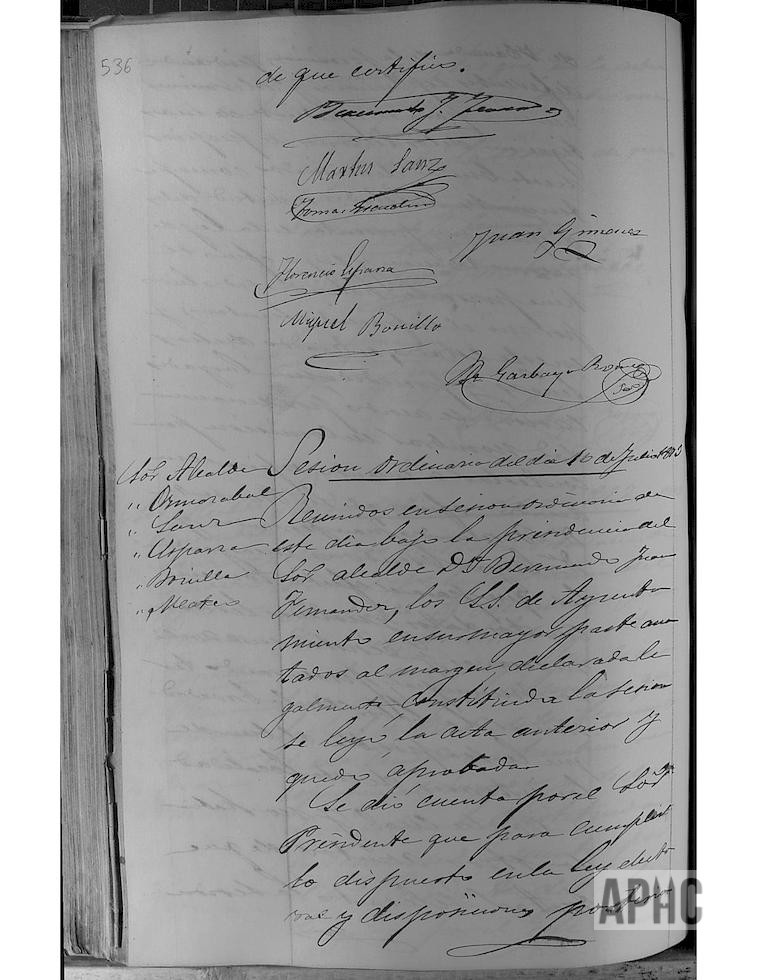 536
de que certifico.
Martin Sanz
Juan Gimenez
Florencio Esparza
Miguel Bonillo
Garbayo
Sor. Alcalde
" Ormazabal
" Sanz
" Esparza
" Bonilla
" Mateo
Sesion ordinaria del dia 16 de Julio
Reunidos en sesion ordinaria de
este dia bajo la presidencia del
Sor. alcalde Dn. Bermundo Juan
Fernandez, los S.S. de Ayunta
miento en su mayor parte ano
tados al margen, declarada le
galmente constituida la sesion
se leyó la acta anterior y
quedó aprobada.
Se dió cuenta por el Sor.
Presidente que para cumplir
lo dispuesto en la ley electo
ral y disposiciones posterio
APHC